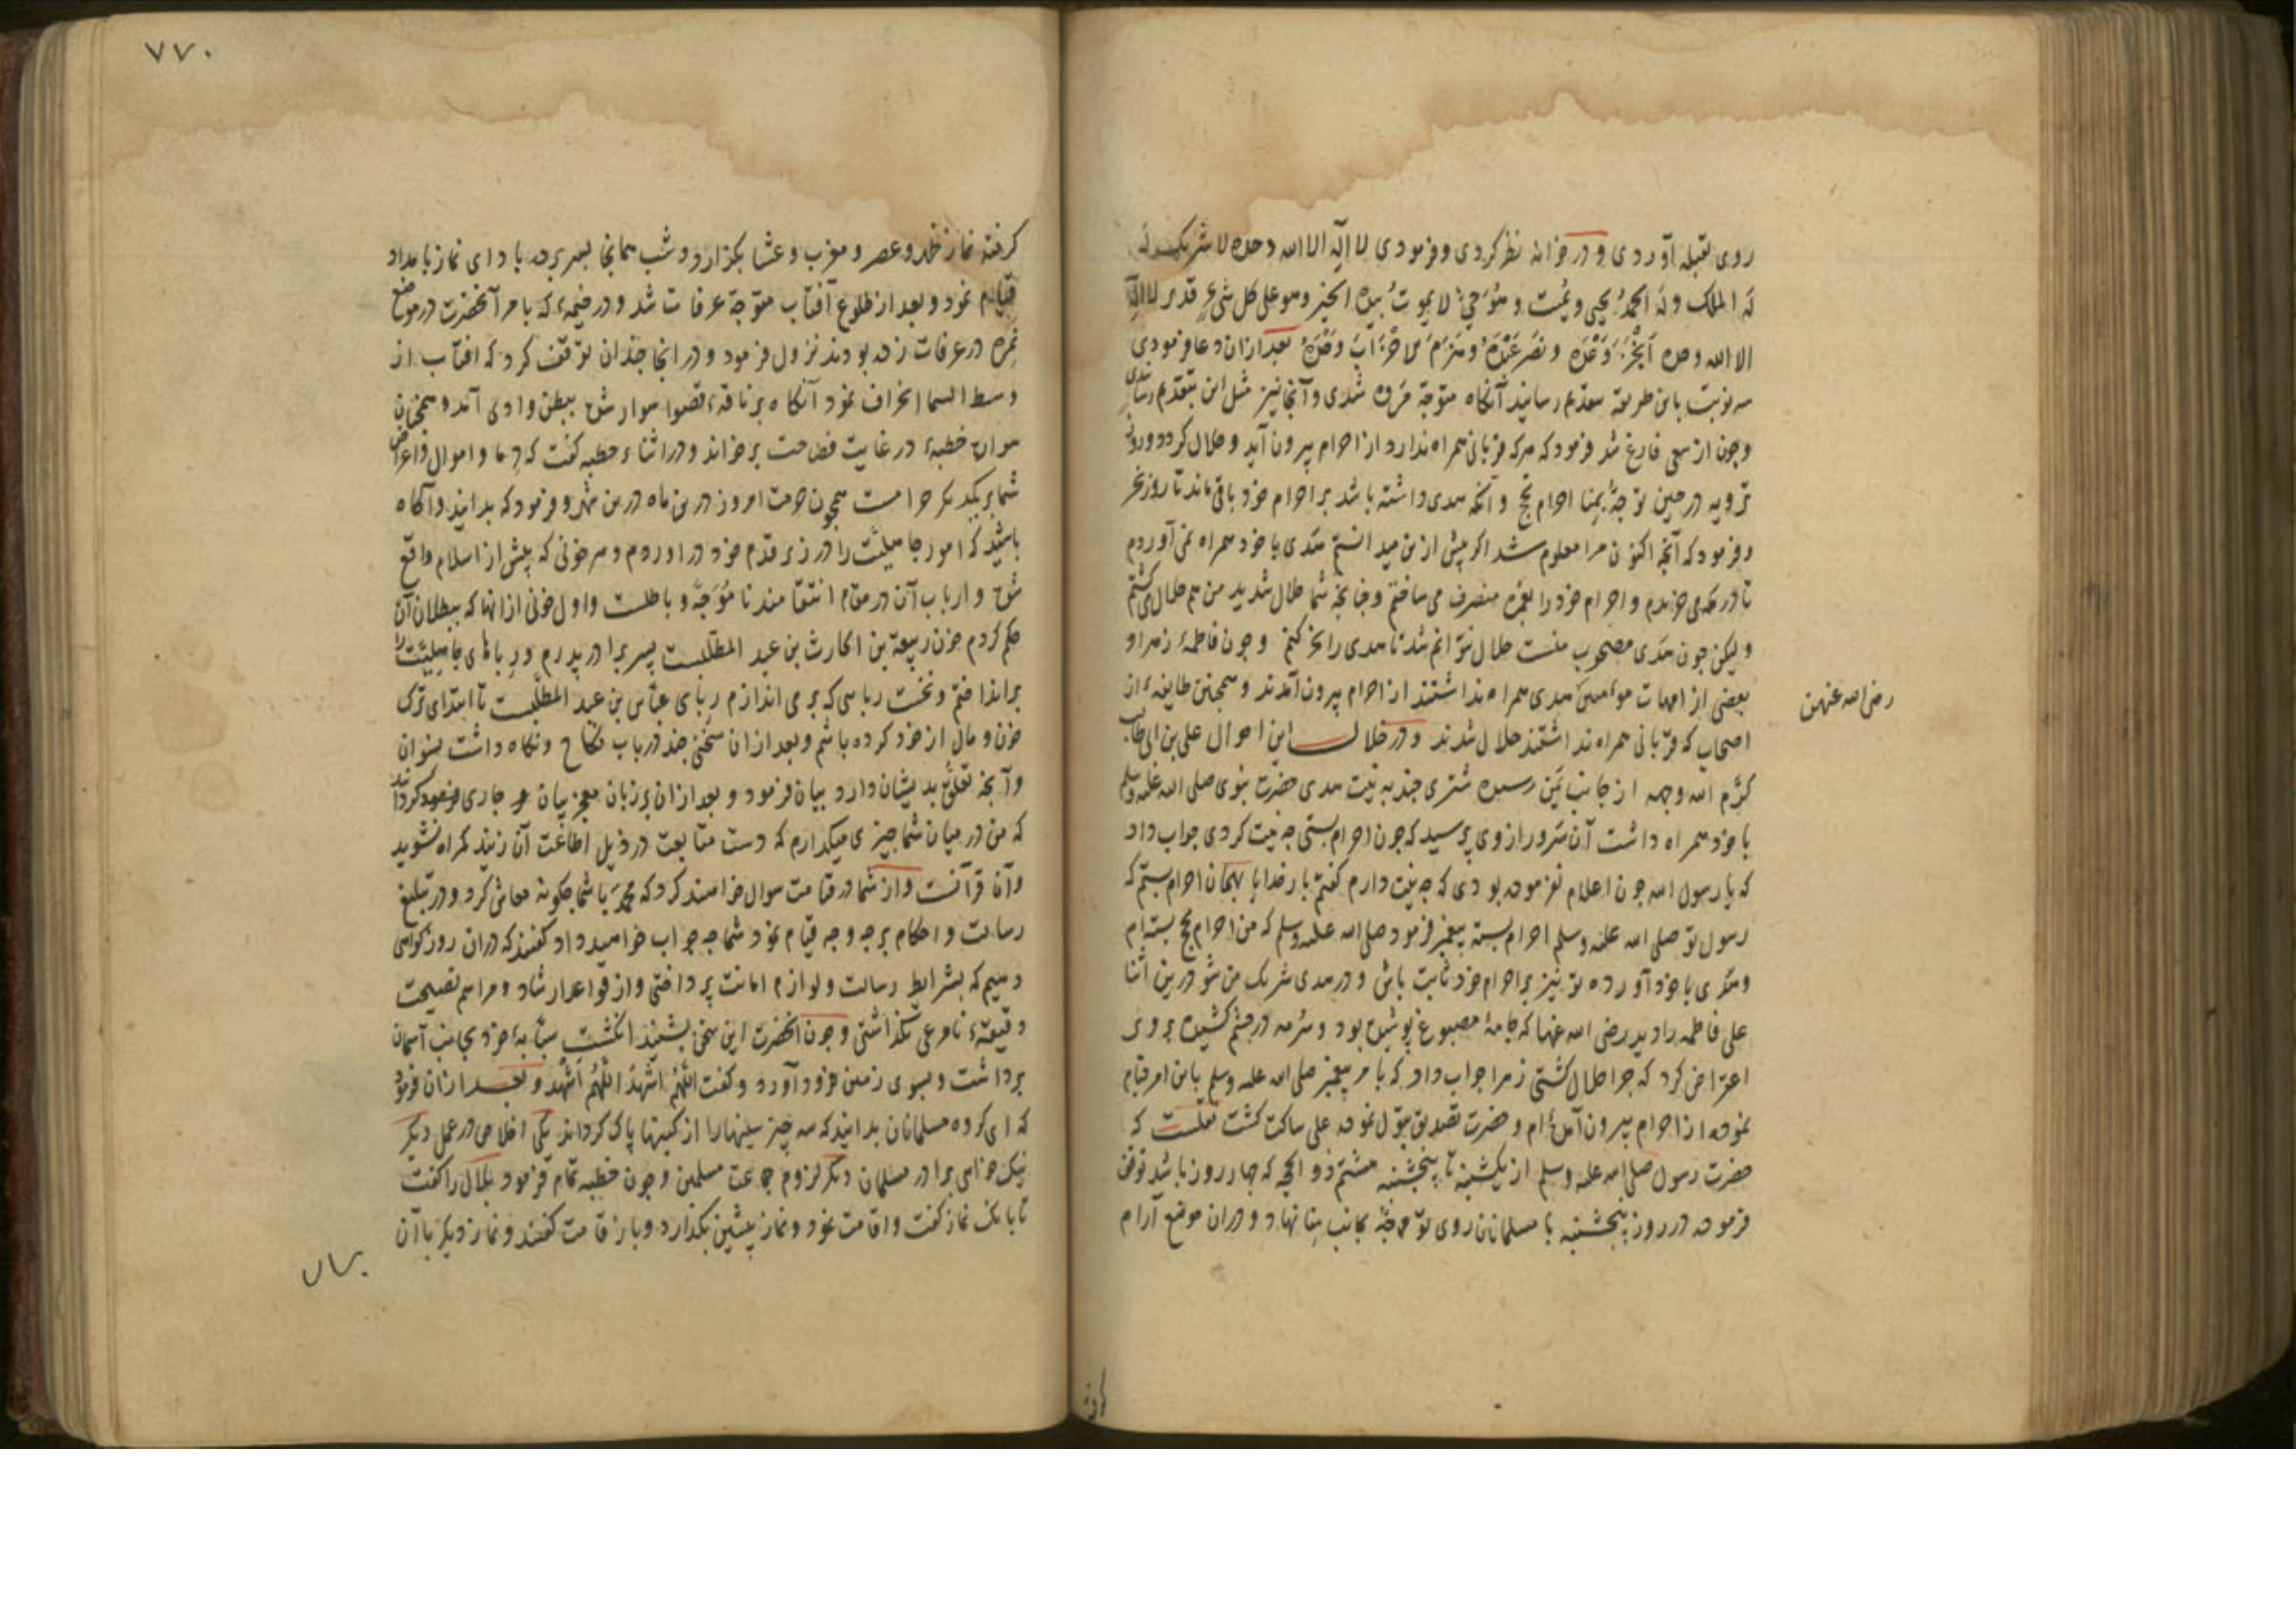 روی بقبله آوردی و در خانه نظر کردی و فرمودی لا اله الا الله وحده لا شریک له
له الملک وله الحمد یحیی ویمیت وهو حی لا یموت بیده الخیر وهو علی کل شیء قدیر لا اله
الا الله وحده انجز وعده ونصر عبده وهزم الاحزاب وحده بعد ازان دعا فرمودی
سه نوبت باین طریقه بتقدیم رسانید آنکاه متوجه مروه شدی و آنجا نیز مثل این بتقدیم رسانیدی
و چون از سعی فارغ شد فرمود که هرکه قربانی همراه ندارد از احرام بیرون آید و حلال کردد و روز
ترویه در حین توجه بمنا احرام حج و آنکه هدی داشته باشد بر احرام خود باقی ماند تا روز نحر
و فرمود که آنچه اکنون مرا معلوم شد اکر پیش ازین میدانستم هدی با خود همراه نمی آوردم
تا در مکه می خریدم و احرام خود را بعمره منصرف می ساختم و چنانچه شما حلال شدید من هم حلال می کشتم
و لیکن چون هدی مصحوب منست حلال نتوانم شد تا هدی را نحر کنم و چون فاطمهٔ زهرا و
بعضی از امهات مؤمنین هدی همراه نداشتند از احرام بیرون آمدند و همچنین طایفهٔ از
رضی الله عنهن
اصحاب که قربانی همراه نداشتند حلال شدند و در خلال این احوال علی بن ابی طالب
کرم الله وجهه از جانب یمن رسیده شتری چند به نیت هدی حضرت نبوی صلی الله علیه وسلم
با خود همراه داشت آن سرور از وی پرسید که چون احرام بستی چه نیت کردی جواب داد
که یا رسول الله چون اعلام نفرموده بودی که چه نیت دارم کفتم بار خدایا بهمان احرام بستم که
رسول تو صلی الله علیه وسلم احرام بسته پیغمبر فرمود صلی الله علیه وسلم که من احرام بحج بسته ام
و هدی با خود آورده تو نیز بر احرام خود ثابت باش و در هدی شریک من شو درین اثنا
علی فاطمه را دید رضی الله عنها که جامهٔ مصبوغ پوشیده بود و سرمه در چشم کشیده بر وی
اعتراض کرد که چرا حلال کشتی زهرا جواب داد که بامر پیغمبر صلی الله علیه وسلم باین امر قیام
نموده از احرام بیرون آمده ام و حضرت تصدیق بتول نموده علی ساکت کشت نقلست که
حضرت رسول صلی الله علیه وسلم از یکشنبه تا پنجشنبه هشتم ذو الحجه که چهار روز باشد توقف
فرموده در روز پنجشنبه با مسلمانان روی توجه بجانب منا نهاد و در آن موضع آرام
۷۷۰
کرفته نماز ظهر و عصر و مغرب و عشا بکزارد و شب همانجا بسر برده بادای نماز بامداد
قیام نمود و بعد از طلوع آفتاب متوجه عرفات شد و در خیمهٔ که بامر آنحضرت در موضع
نمره در عرفات زده بودند نزول فرمود و در انجا چندان توقف کرد که افتاب از
وسط السما انحراف نمود آنکاه بر ناقهٔ قصوا سوار شده ببطن وادی آمد و همچنان
سواره خطبهٔ در غایت فصاحت برخواند و در اثناء خطبه کفت که دما و اموال و اعراض
شما بر یکدیکر حرامست همچون حرمت امروز درین ماه درین شهر و فرمود که بدانید و آکاه
باشید که امور جاهلیت را در زیر قدم خود در اوردم و هر خونی که پیش از اسلام واقع
شده و ارباب آن در مقام انتقامند نا موجه و باطلست و اول خونی از انها که ببطلان آن
حکم کردم خون ربیعة بن الحارث بن عبد المطلبست پسر برادر پدرم و رباهای جاهلیت را
برانداختم و نخست ربایی که بر می اندازم ربای عباس بن عبد المطلبست تا ابتدای ترک
خون و مال از خود کرده باشم و بعد ازان سخنی چند در باب نکاح و نکاه داشت نسوان
و آنچه تعلق بدیشان دارد بیان فرمود و بعد ازان بر زبان معجز بیان جاری کردانید
که من در میان شما چیزی میکذارم که دست متابعت در ذیل اطاعت آن زنید کمراه نشوید
و آن قرآنست و از شما در قیامت سوال خواهند کرد که محمد با شما چکونه معاش کرد و در تبلیغ
رسالت و احکام بر چه وجه قیام نمود شما چه جواب خواهید داد کفتند که دران روز کواهی
دهیم که بشرایط رسالت و لوازم امانت پرداختی و از قواعد ارشاد و مراسم نصیحت
دقیقهٔ نامرعی نکذاشتی و چون آنحضرت این سخن بشنید انکشت سبابهٔ خود بجانب آسمان
برداشت و بسوی زمین فرود آورد و کفت اللهم اشهد اللهم اشهد و بعد ازان فرمود
که ای کروه مسلمانان بدانید که سه چیز سینها را از کینها پاک کرداند یکی اخلاص در عمل دیکر
نیک خواهی برادر مسلمان دیکر لزوم جماعت مسلمین و چون خطبه تمام فرمود بلال را کفت
تا بانک نماز کفت و اقامت نمود و نماز پیشین بکذارد و باز قامت کفتند و نماز دیکر با آن